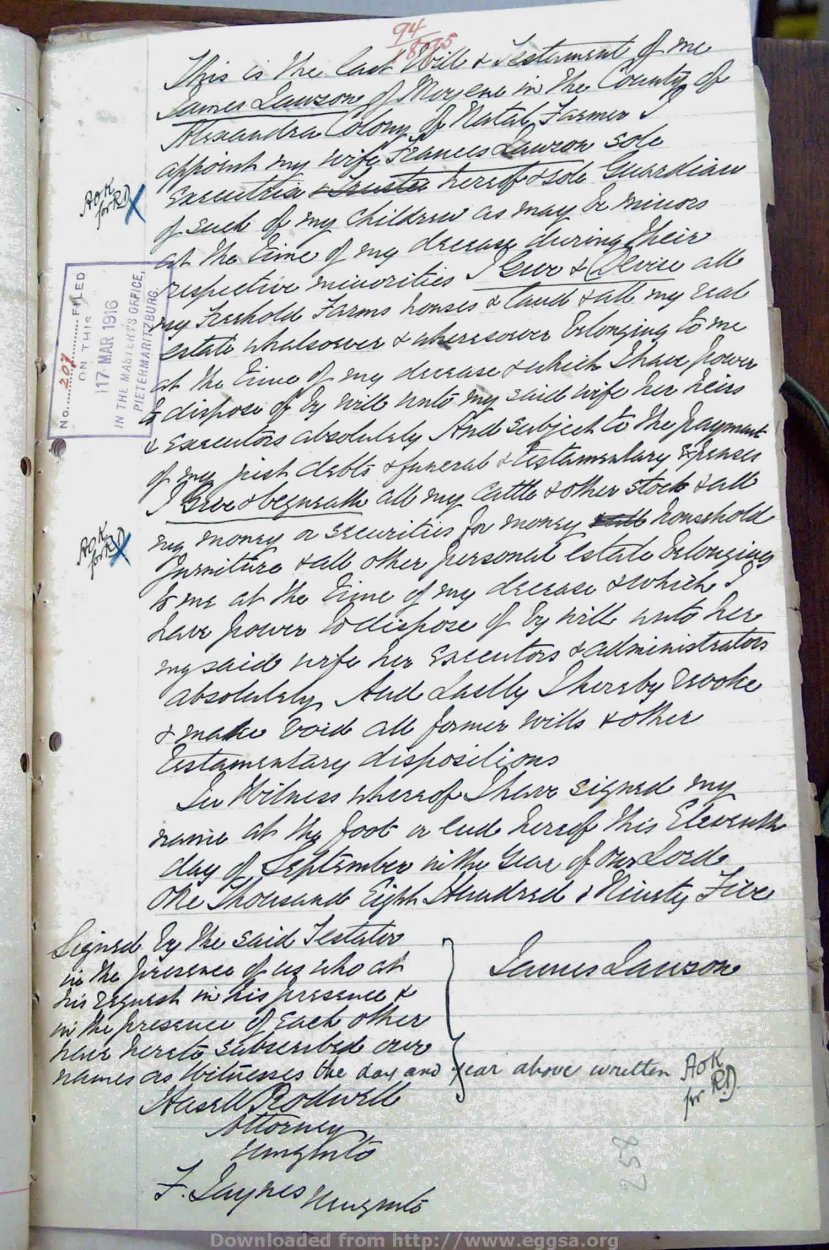 94
1895
This is the last Will & Testament of me
James Lawson of Moyeni in the County of
Alexandra Colony of Natal, Farmer I
appoint my wife Frances Lawson sole
Executrix & Trustee hereof & sole Guardian
of such of my children as may be minors
at the time of my decease during their
respective minorities I Give & Devise all
my Freehold Farms houses & land & all my real
estate whatsoever & wheresoever belonging to me
at the time of my decease & which I have power
to dispose of by will unto my said wife her heirs
& Executors absolutely And subject to the payment
of my just debts & funeral & testamentary Expenses
I Give & bequeath all my cattle & other stock & all
my money or securities for money household
furniture & all other personal estate belonging
to me at the time of my decease & which I
have power to dispose of by will unto her
my said wife her Executors & administrators
absolutely And Lastly I hereby revoke
& make void all former wills & other
testamentary dispositions
In Witness whereof I have signed my
name at the foot or end hereof this Eleventh
day of September in the year of our Lord
One Thousand Eight Hundred & Ninety Five
Signed by the said Testator
in the presence of us who at
his request in his presence &
in the presence of each other
have hereto subscribed our
names as Witnesses the day and year above written
James Lawson
Rodwell
Attorney
Umzinto
F. Jaynes Umzinto
AOK
for RD
AOK
for RD
AOK
for RD
No. 207 FILED
ON THIS
17 MAR 1916
IN THE MASTER'S OFFICE,
PIETERMARITZBURG.
258
Downloaded from http://www.eggsa.org